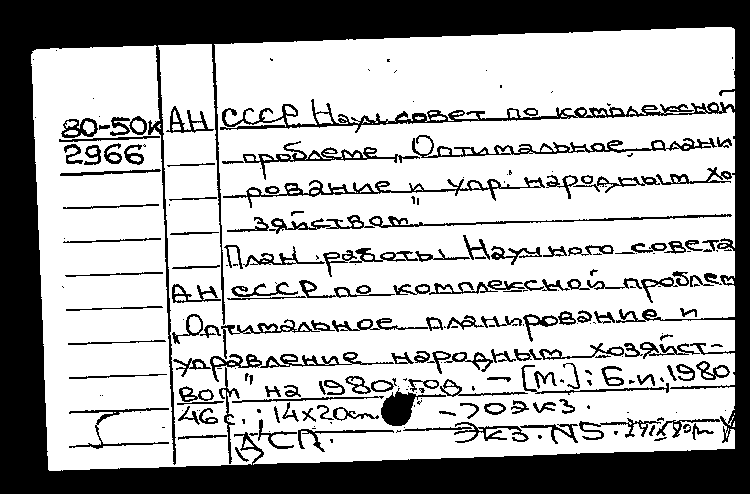 80-50к АН СССР Науч. совет по комплексной
2966 проблеме „Оптимальное плани-
рование и упр. народным хо-
зяйством"
План работы Научного совета
АН СССР по комплексной проблем
„Оптимальное планирование и
управление народным хозяйст-
вом" на 1980 год. — [М.]: Б.и., 1980.
46 с.; 14х20см. -70экз.
ДСП. Экз. N5.